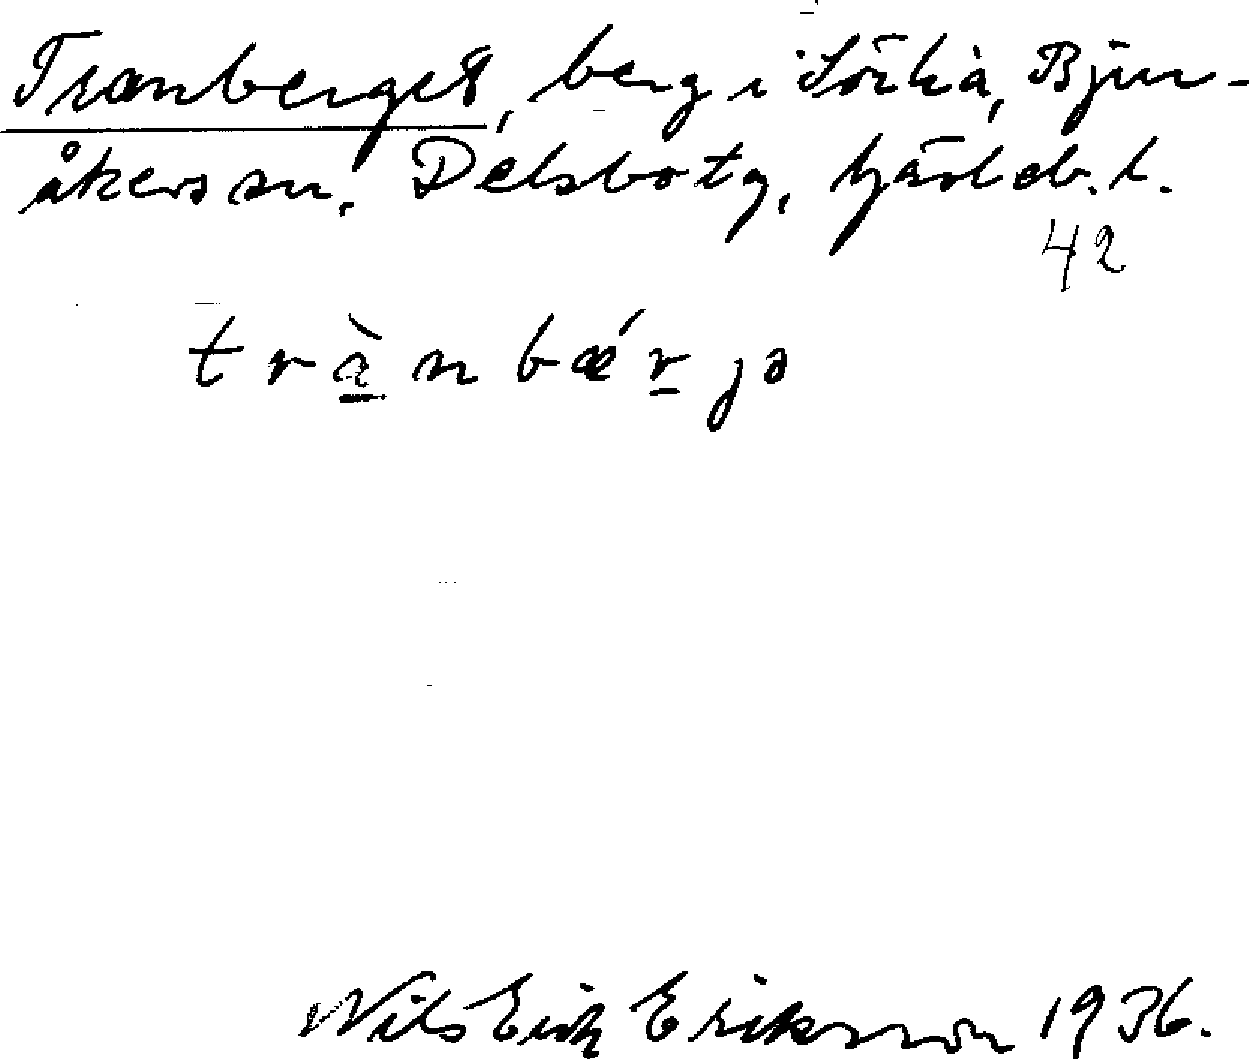 Tranberget, berg i Sörhå, Bjur-
åkers sn, Delsbo tg, Gävleb. l.
42
trànbǽrjə
Nils Erik Eriksson 1936.